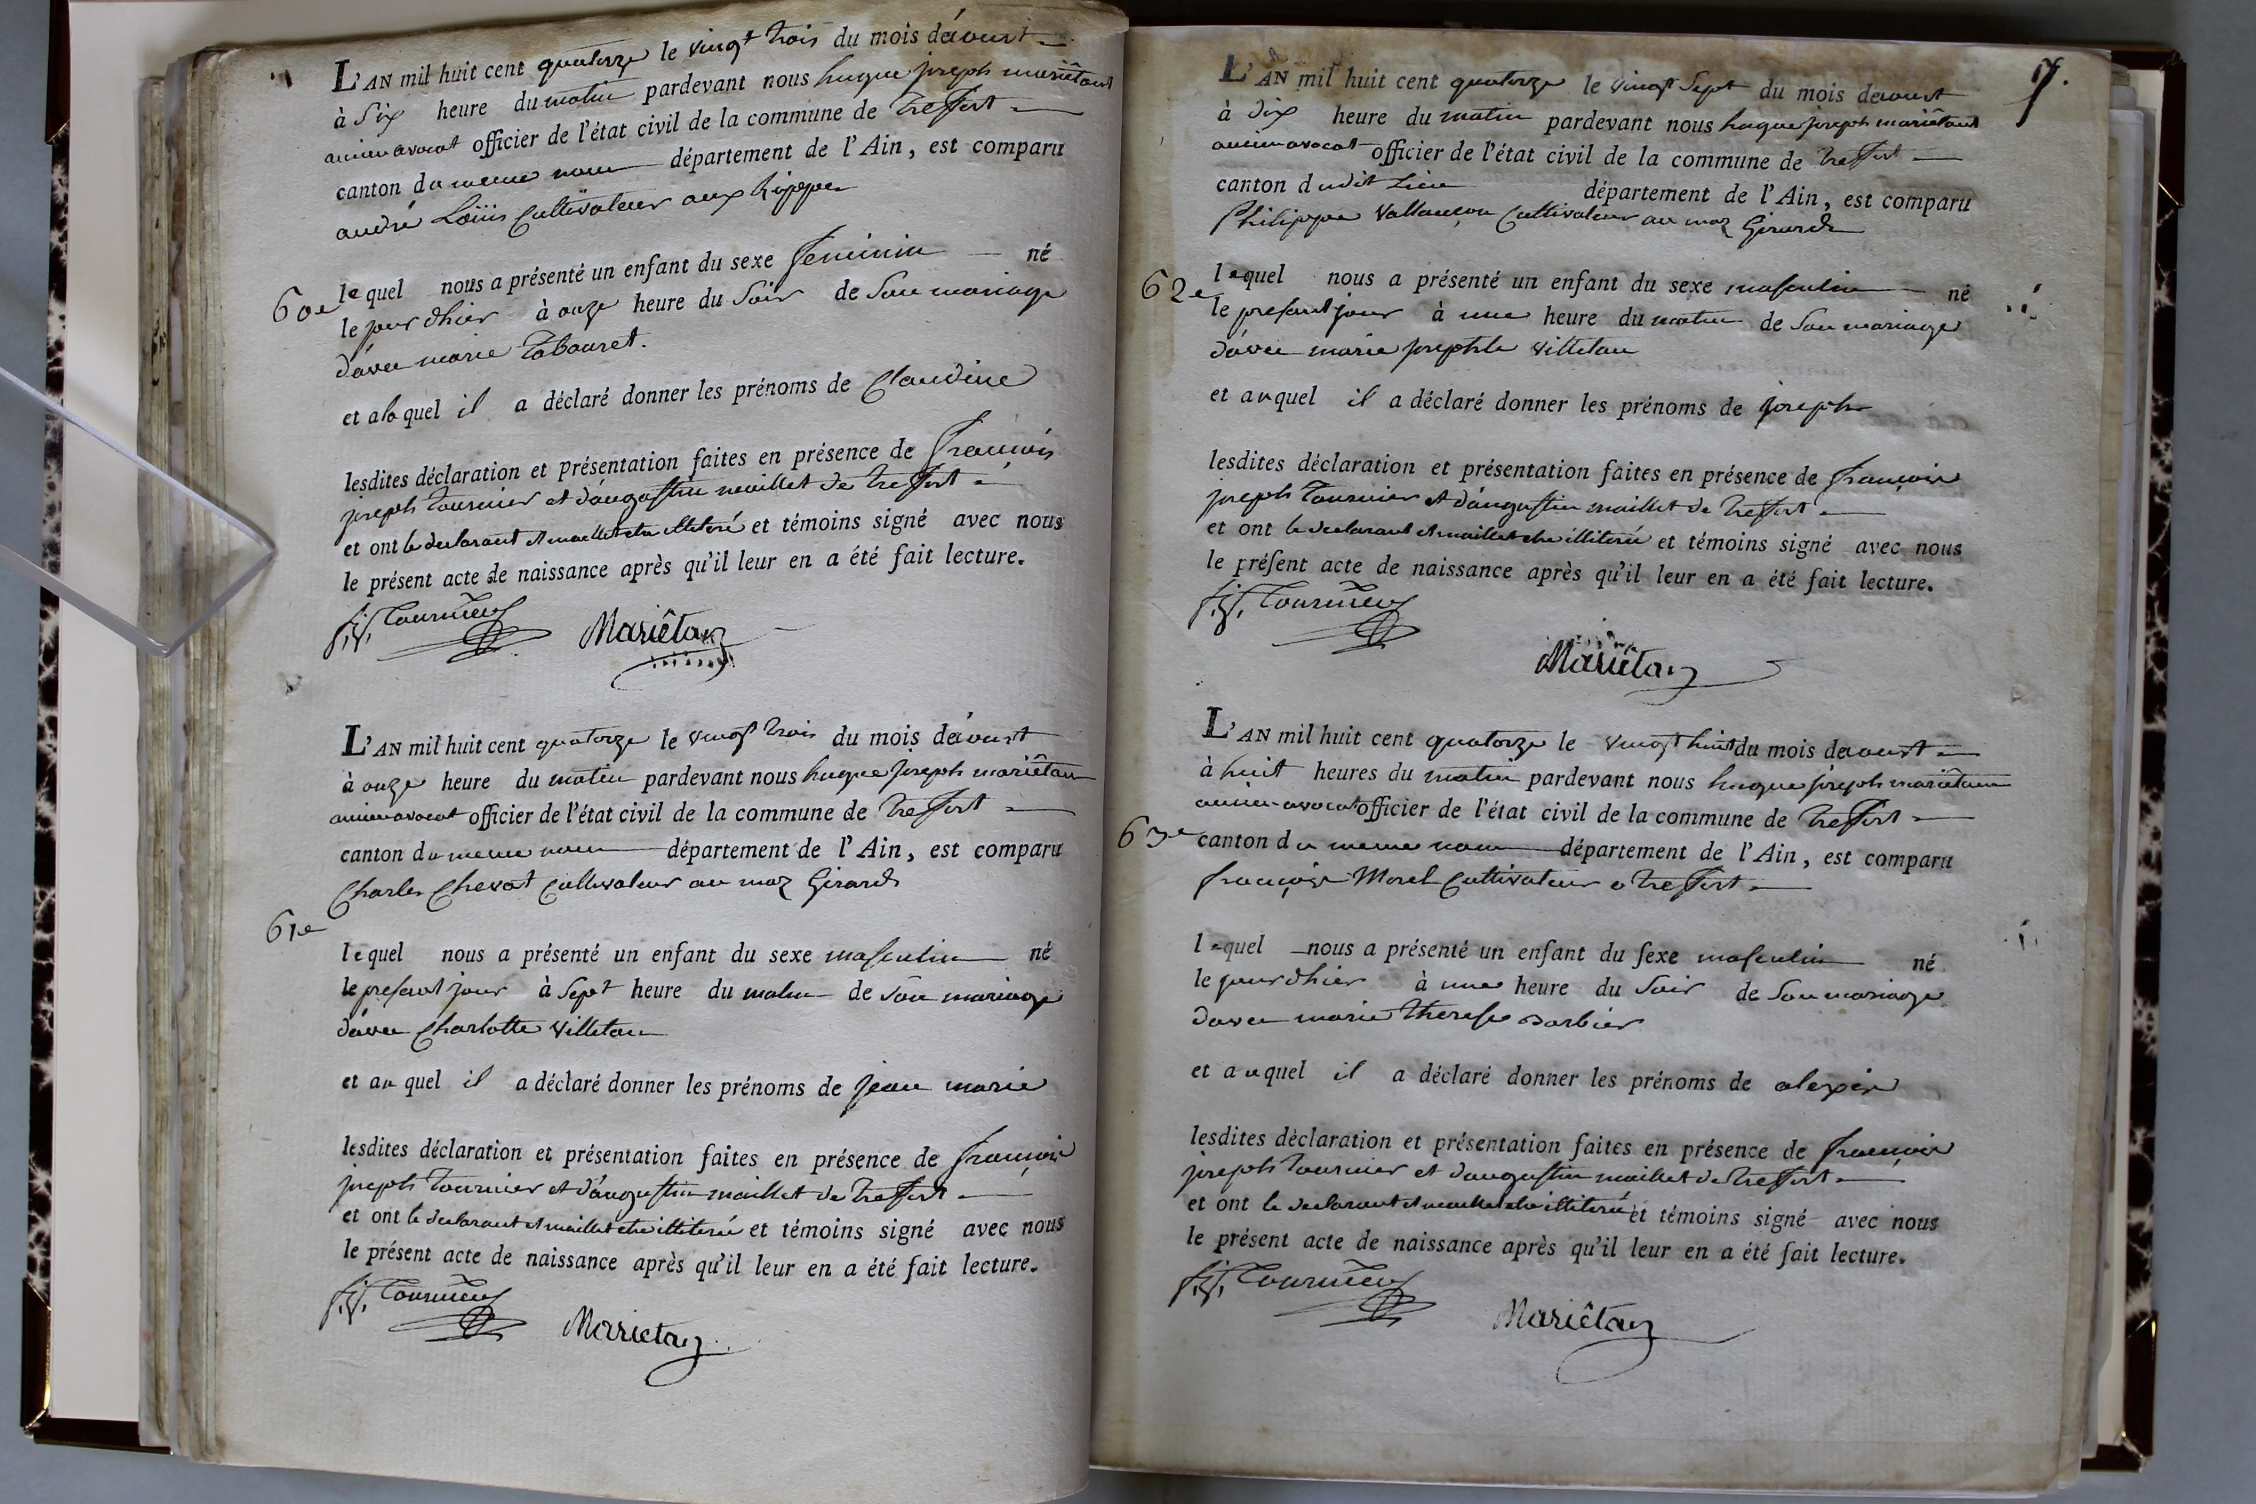 L'AN mil huit cent quatorze le vingt trois du mois d'aoust
à six heure du matin pardevant nous hugue joseph mariétand
ancien avocat officier de l'état civil de la commune de treffort
canton du meme nom département de l'Ain, est comparu
andré Loüis Cultivateur aux Rippes
60e
lequel nous a présenté un enfant du sexe feminin né
le jour d'hier à onze heure du soir de son mariage
d'avec marie Tabouret.
et alaquel il a déclaré donner les prénoms de Claudine
lesdites déclaration et présentation faites en présence de françois
joseph tournier et d'augustin maillet de treffort
et ont le declarant et maillet etre illiteré et témoins signé avec nous
le présent acte de naissance après qu'il leur en a été fait lecture.
f. j. Tournier Mariétan
L'AN mil huit cent quatorze le vingt trois du mois d'aoust
à onze heure du matin pardevant nous hugue joseph mariétan
ancien avocat officier de l'état civil de la commune de treffort
canton du meme nom département de l'Ain, est comparu
Charles Chevat Cultivateur au maz Girard
61e
lequel nous a présenté un enfant du sexe masculin né
le present jour à sept heure du matin de son mariage
d'avec Charlotte villetan
et auquel il a déclaré donner les prénoms de jean marie
lesdites déclaration et présentation faites en présence de françois
joseph tournier et d'augustin maillet de treffort
et ont le declarant et maillet etre illiteré et témoins signé avec nous
le présent acte de naissance après qu'il leur en a été fait lecture.
f. j. Tournier Mariétan
L'AN mil huit cent quatorze le vingt sept du mois d'aoust
à dix heure du matin pardevant nous hugue joseph mariétand
ancien avocat officier de l'état civil de la commune de treffort
canton dudit Lieu département de l'Ain, est comparu
Philippe Vallançon Cultivateur au maz Girard
62e
lequel nous a présenté un enfant du sexe masculin né
le present jour à une heure du matin de son mariage
d'avec marie josephte villetan
et auquel il a déclaré donner les prénoms de joseph
lesdites déclaration et présentation faites en présence de françois
joseph tournier et d'augustin maillet de treffort
et ont le declarant et maillet etre illiteré et témoins signé avec nous
le présent acte de naissance après qu'il leur en a été fait lecture.
f. j. Tournier
Mariétan
L'AN mil huit cent quatorze le vingt huit du mois d'aoust
à huit heures du matin pardevant nous hugue joseph mariétan
ancien avocat officier de l'état civil de la commune de treffort
63e
canton du meme nom département de l'Ain, est comparu
françois Morel Cultivateur a treffort
lequel nous a présenté un enfant du sexe masculin né
le jour d'hier à une heure du soir de son mariage
d'avec marie therese Barbier
et auquel il a déclaré donner les prénoms de alexis
lesdites déclaration et présentation faites en présence de françois
joseph tournier et d'augustin maillet de treffort
et ont le declarant et maillet etre illiteré et témoins signé avec nous
le présent acte de naissance après qu'il leur en a été fait lecture.
f. j. Tournier
Mariétan